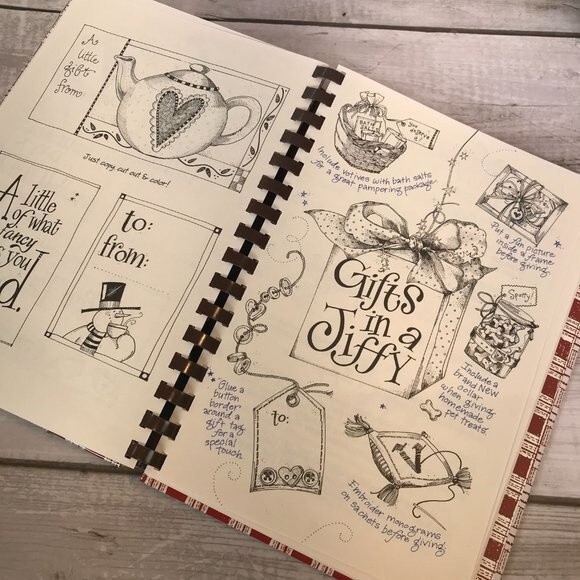 A
little
gift
from:
Just copy, cut out & color!
A little
of what
fancy
you
to:
from:
You
deserve
it!
Include votives with bath salts
for a great pampering package.
Put a fun picture
inside a frame
before giving.
Gifts
in a
Jiffy
Spotty!
Include a
brand NEW
collar
when giving
homemade
pet treats.
Glue a
button
border
around a
gift tag
for a
special
touch.
to:
V
Embroider monograms
on sachets before giving.